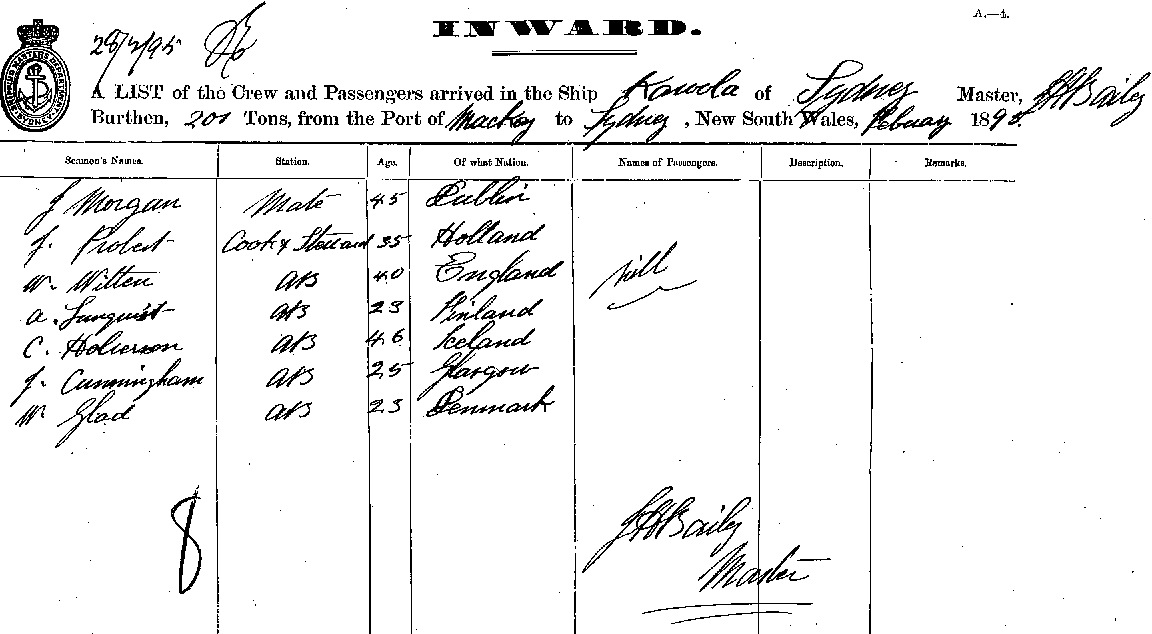 A.—4.
INWARD.
28/2/95
A LIST of the Crew and Passengers arrived in the Ship Kawela of Sydney Master, JHBailey
Burthen, 200 Tons, from the Port of Mackay to Sydney, New South Wales, February 1895.
Seamen's Names. Station. Age. Of what Nation. Names of Passengers. Description. Remarks.
J Morgan Mate 45 Dublin
J. Probert Cook & Steward 35 Holland
W. Witten AB 40 England nill
A. Lunquist AB 23 Finland
C. AB 46 Iceland
J. Cunningham AB 25 Glasgow
W. Glad AB 23 Denmark
8
JHBailey
Master